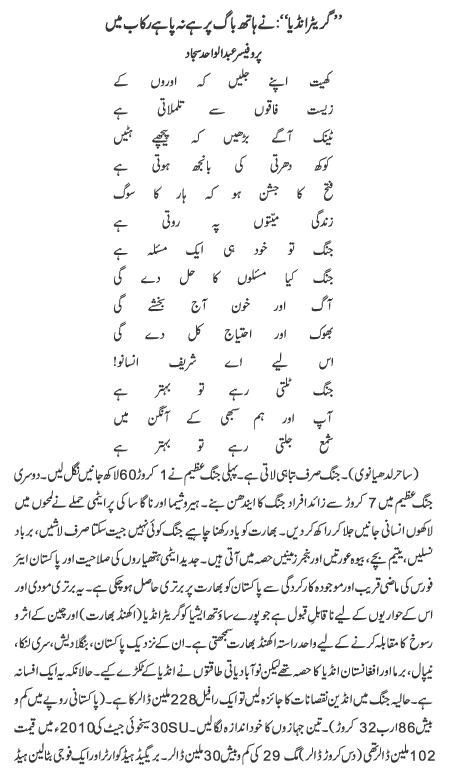 ”گریٹر انڈیا“: نے ہاتھ باگ پر ہے نہ پا ہے رکاب میں
پروفیسر عبدالواحد سجاد
کھیت اپنے جلیں کہ اوروں کے
زیست فاقوں سے تلملاتی ہے
ٹینک آگے بڑھیں کہ پیچھے ہٹیں
کوکھ دھرتی کی بانجھ ہوتی ہے
فتح کا جشن ہو کہ ہار کا سوگ
زندگی میتوں پہ روتی ہے
جنگ تو خود ہی ایک مسئلہ ہے
جنگ کیا مسئلوں کا حل دے گی
آگ اور خون آج بخشے گی
بھوک اور احتیاج کل دے گی
اس لیے اے شریف انسانو!
جنگ ٹلتی رہے تو بہتر ہے
آپ اور ہم سبھی کے آنگن میں
شمع جلتی رہے تو بہتر ہے
(ساحر لدھیانوی)۔ جنگ صرف تباہی لاتی ہے۔ پہلی جنگ عظیم نے 1 کروڑ 60 لاکھ جانیں نگل لیں۔ دوسری
جنگ عظیم میں 7 کروڑ سے زائد افراد جنگ کا ایندھن بنے۔ ہیروشیما اور ناگا ساکی پر ایٹمی حملے نے لمحوں میں
لاکھوں انسانی جانیں جلا کر راکھ کر دیں۔ بھارت کو یاد رکھنا چاہیے جنگ کوئی نہیں جیت سکتا صرف لاشیں، برباد
نسلیں، یتیم بچے، بیوہ عورتیں اور بنجر زمینیں حصہ میں آتی ہیں۔ جدید ایٹمی ہتھیاروں کی صلاحیت اور پاکستان ایئر
فورس کی ماضی قریب اور موجودہ کارکردگی سے پاکستان کو بھارت پر برتری حاصل ہو چکی ہے۔ یہ برتری مودی اور
اس کے حواریوں کے لیے ناقابل قبول ہے جو پورے ساؤتھ ایشیا کو گریٹر انڈیا (اکھنڈ بھارت) اور چین کے اثر و
رسوخ کا مقابلہ کرنے کے لیے واحد راستہ اکھنڈ بھارت سمجھتی ہے۔ ان کے نزدیک پاکستان، بنگلا دیش، سری لنکا،
نیپال، برما اور افغانستان انڈیا کا حصہ تھے لیکن نوآبادیاتی طاقتوں نے انڈیا کے ٹکڑے کیے۔ حالانکہ یہ ایک افسانہ
ہے۔ حالیہ جنگ میں انڈین نقصانات کا جائزہ لیں تو ایک رافیل 228 ملین ڈالر کا ہے۔ (پاکستانی روپے میں کم و
بیش 86 ارب 32 کروڑ)۔ تین جہازوں کا خود اندازہ لگا لیں۔ 30SU سیخوئی جیٹ کی 2010ء میں قیمت
102 ملین ڈالر تھی (دس کروڑ ڈالر) مگ 29 کی کم و بیش 30 ملین ڈالر۔ بریگیڈ ہیڈ کوارٹر اور ایک فوجی بٹالین ہیڈ